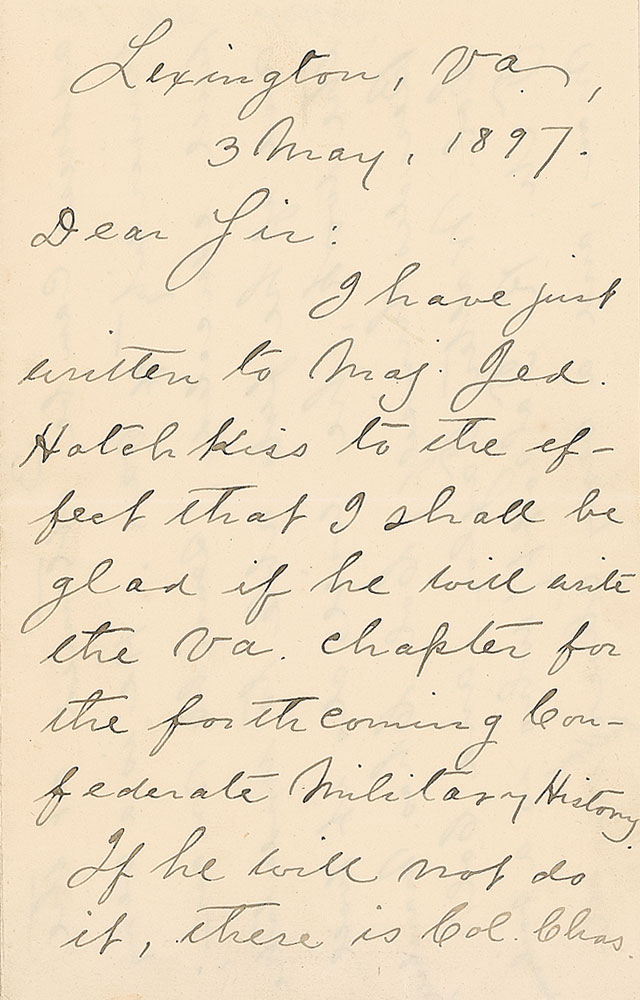 Lexington, Va,
3 May, 1897.
Dear Sir:
I have just
written to Maj. Jed.
Hotchkiss to the ef-
fect that I shall be
glad if he will write
the Va. chapter for
the forthcoming Con-
federate Military History.
If he will not do
it, there is Col. Chas.